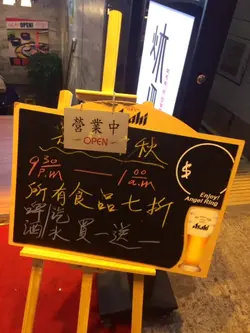 Asahi
營業中
OPEN
秋
9:30 p.m — 1:00 a.m
所有食品七折
啤酒 汽水 買一送一
$
Enjoy!
Angel Ring
Asahi